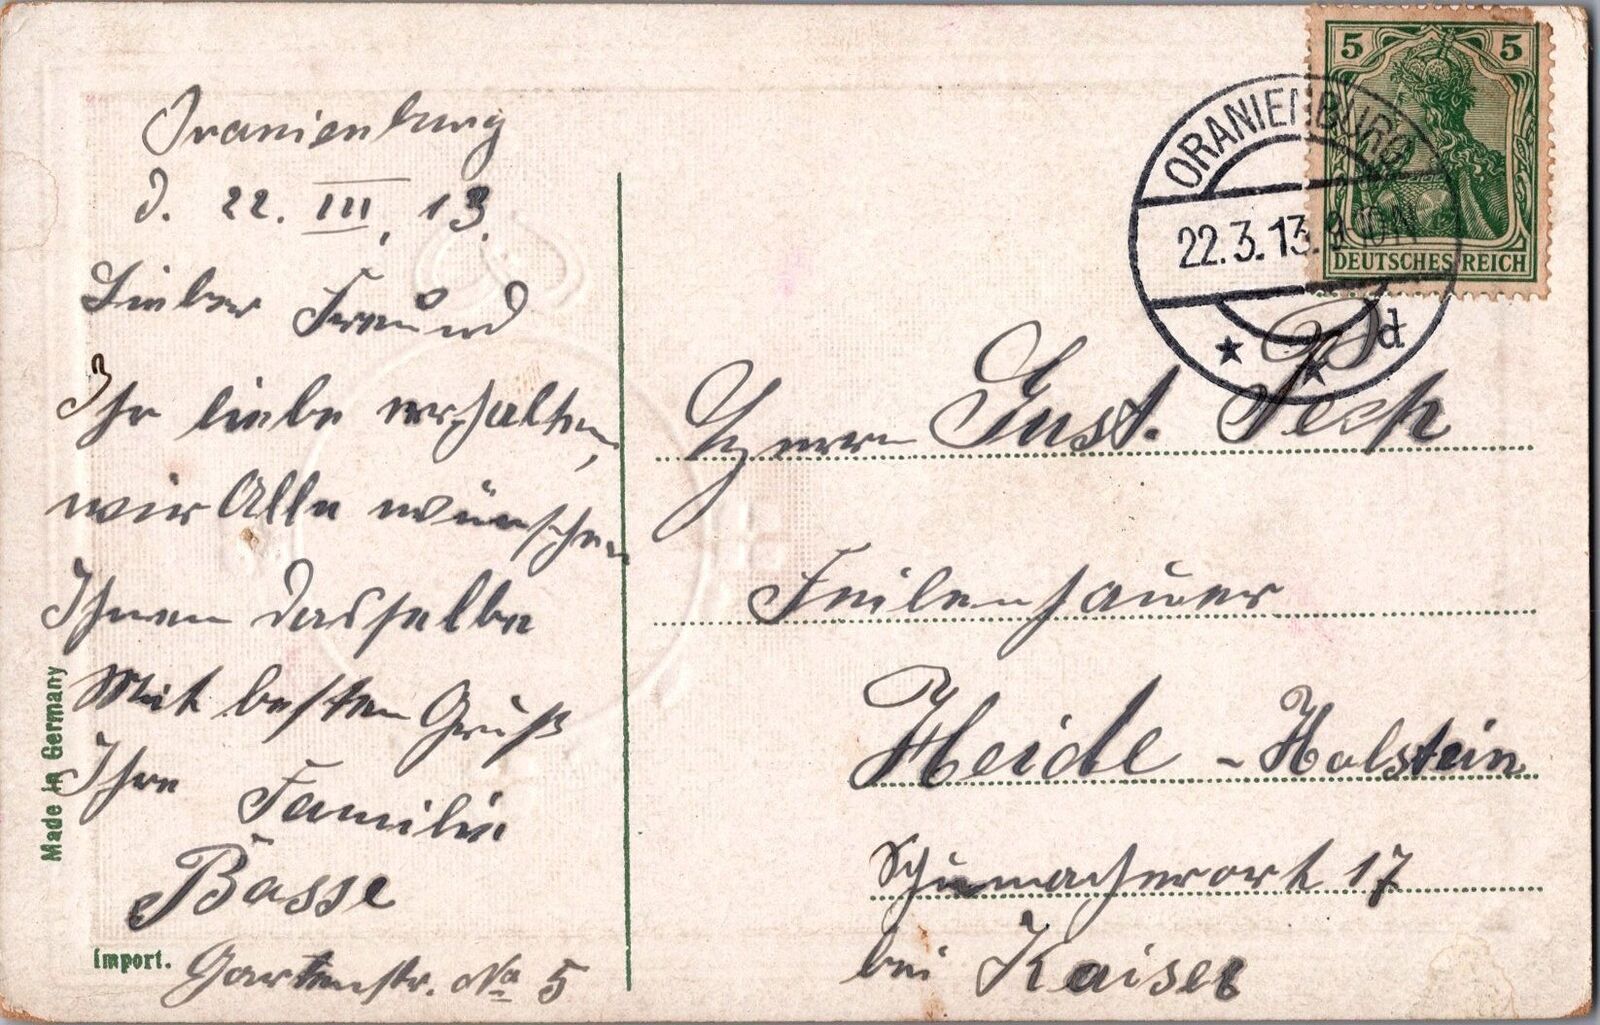 Oranienburg
d. 22. III. 13.
Lieber Freund
Ihr liebe erhalten,
wir Alle wünschen
Ihnen dasselbe
Mit besten Gruß
Ihre Familie
Basse
Gartenstr. No 5
Made in Germany
Import.
5 5
DEUTSCHES REICH
ORANIENBURG
22.3.13. 9-10N
* d *
Herrn Gust. Pech
Feilenhauer
Heide - Holstein
Schumacherort 17
bei Kaiser